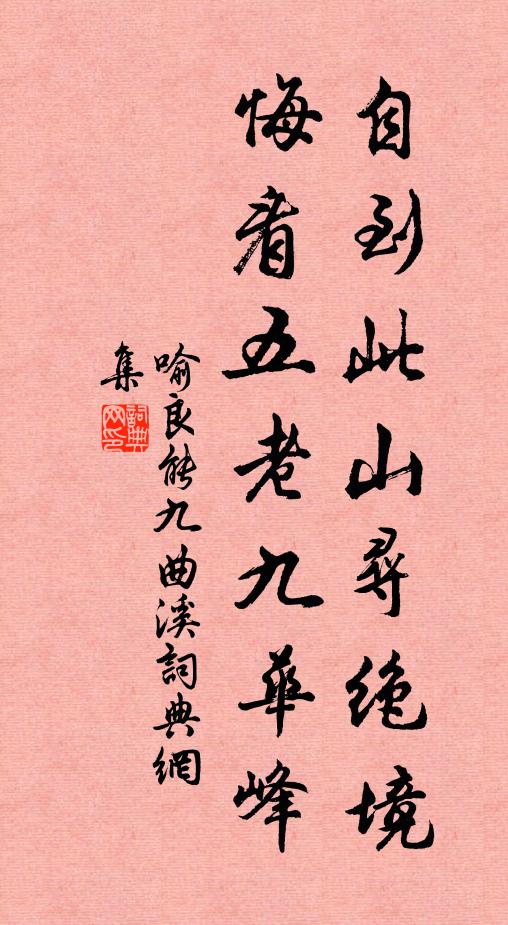 自到此山尋絶境
悔看五老九華峰
喻良能九曲溪詞典網
集
詞典
网印